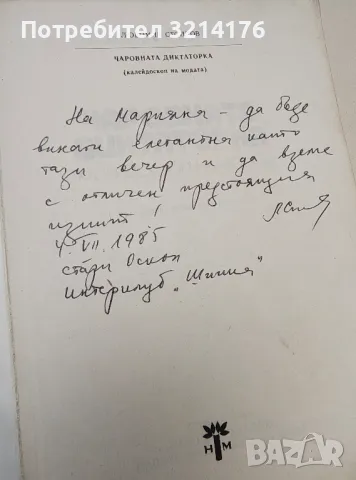 Потребител 3214176
ЧАРОВНАТА ДИКТАТОРКА
(калейдоскоп на модата)
На Марияна – да бъде
винаги елегантна както
тази вечер и да вземе
с отличен предстоящия
изпит!
4.VII.1985
стари Оскол
интерклуб „
НМ
BAZAR